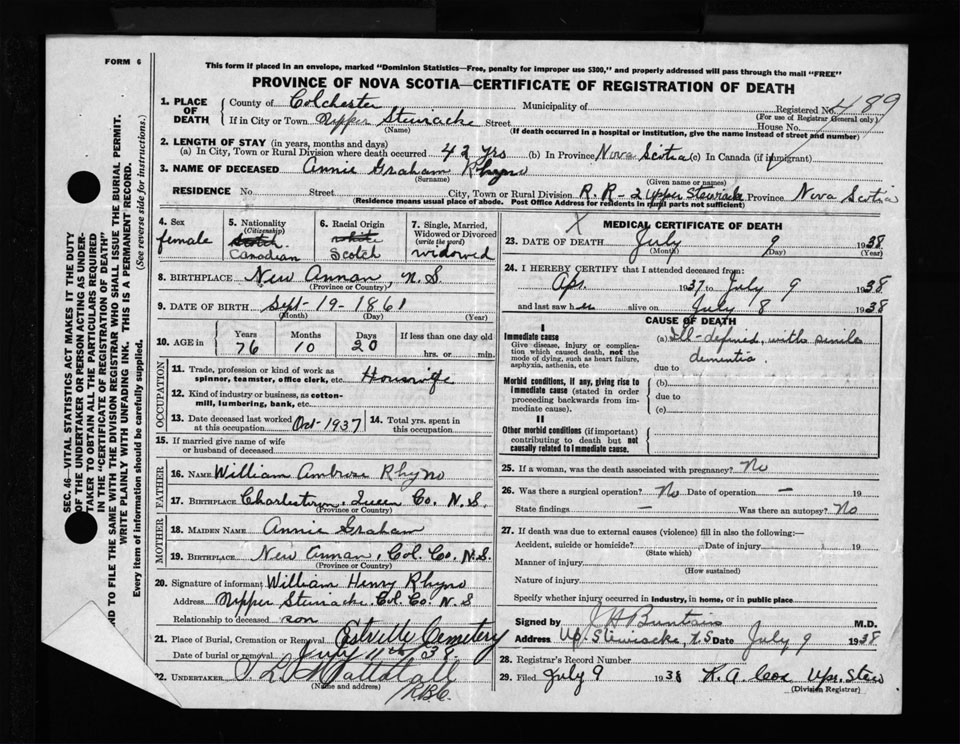 FORM 6
This form if placed in an envelope, marked "Dominion Statistics—Free, penalty for improper use $300," and properly addressed will pass through the mail "FREE"
PROVINCE OF NOVA SCOTIA—CERTIFICATE OF REGISTRATION OF DEATH
1. PLACE OF DEATH County of Colchester Municipality of Registered No. 489
(For use of Registrar General only)
If in City or Town Upper Stewiacke Street House No.
(Name) (If death occurred in a hospital or institution, give name instead of street and number)
2. LENGTH OF STAY (in years, months and days)
(a) In City, Town or Rural Division where death occurred 42 yrs (b) In Province Nova Scotia (c) In Canada (if immigrant)
3. NAME OF DECEASED Annie Graham Rhyno
(Surname) (Given name or names)
RESIDENCE No. Street City, Town or Rural Division R.R-2 Upper Stewiacke Province Nova Scotia
(Residence means usual place of abode. Post Office Address for residents in rural parts not sufficient)
4. Sex female
5. Nationality (Citizenship) Scotch Canadian
6. Racial Origin white Scotch
7. Single, Married, Widowed or Divorced (write the word) widowed
8. BIRTHPLACE New Annan, N.S.
(Province or Country)
9. DATE OF BIRTH Sept-19-1861
(Month) (Day) (Year)
10. AGE in Years 76 Months 10 Days 20 If less than one day old hrs. or min.
OCCUPATION
11. Trade, profession or kind of work as spinner, teamster, office clerk, etc. Housewife
12. Kind of industry or business, as cotton-mill, lumbering, bank, etc.
13. Date deceased last worked at this occupation Oct-1937 14. Total yrs. spent in this occupation
15. If married give name of wife or husband of deceased
FATHER
16. NAME William Ambrose Rhyno
17. BIRTHPLACE Charlestown, Queen Co. N.S.
(Province or Country)
MOTHER
18. MAIDEN NAME Annie Graham
19. BIRTHPLACE New Annan, Col. Co. N.S.
(Province or Country)
20. Signature of informant William Henry Rhyno
Address Upper Stewiacke Col. Co. N.S
Relationship to deceased son
21. Place of Burial, Cremation or Removal Cemetery
Date of burial or removal July 11th /38
22. UNDERTAKER
(Name and address)
X MEDICAL CERTIFICATE OF DEATH
23. DATE OF DEATH July 9 1938
(Month) (Day) (Year)
24. I HEREBY CERTIFY that I attended deceased from
Apr. 1937 to July 9 1938
and last saw her alive on July 8 1938
CAUSE OF DEATH
I
Immediate cause
Give disease, injury or complication which caused death, not the mode of dying, such as heart failure, asphyxia, asthenia, etc
(a) Ill-defined, with senile dementia.
due to
Morbid conditions, if any, giving rise to immediate cause (stated in order proceeding backwards from immediate cause).
(b)
due to
(c)
II
Other morbid conditions (if important) contributing to death but not causally related to immediate cause.
25. If a woman, was the death associated with pregnancy? No
26. Was there a surgical operation? No Date of operation — 19
State findings — Was there an autopsy? No
27. If death was due to external causes (violence) fill in also the following:—
Accident, suicide or homicide? Date of injury 19
(State which)
Manner of injury
(How sustained)
Nature of injury
Specify whether injury occurred in industry, in home, or in public place
Signed by J H Buntain M.D.
Address Up. Stewiacke, N.S Date July 9 1938
28. Registrar's Record Number
29. Filed July 9 1938 R.A. Cox Upr. Stew
(Division Registrar)
SEC. 46—VITAL STATISTICS ACT MAKES IT THE DUTY
OF THE UNDERTAKER OR PERSON ACTING AS UNDER-
TAKER TO OBTAIN ALL THE PARTICULARS REQUIRED
IN THE "CERTIFICATE OF REGISTRATION OF DEATH"
ND TO FILE THE SAME WITH THE DIVISION REGISTRAR WHO SHALL ISSUE THE BURIAL PERMIT.
WRITE PLAINLY WITH UNFADING INK. THIS IS A PERMANENT RECORD.
Every item of information should be carefully supplied. (See reverse side for instructions.)